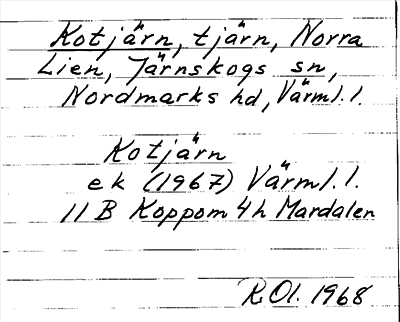 Kotjärn, tjärn, Norra
Lien, Järnskogs sn,
Nordmarks hd, Värml. l.
Kotjärn
ek (1967) Värml. l.
11 B Koppom 4h Mardalen
R.Ol. 1968